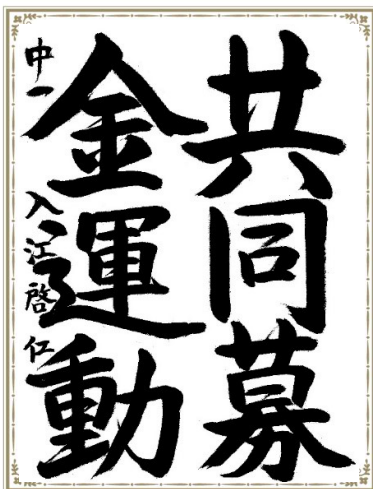 共同募
金運動
中一 入江啓仁